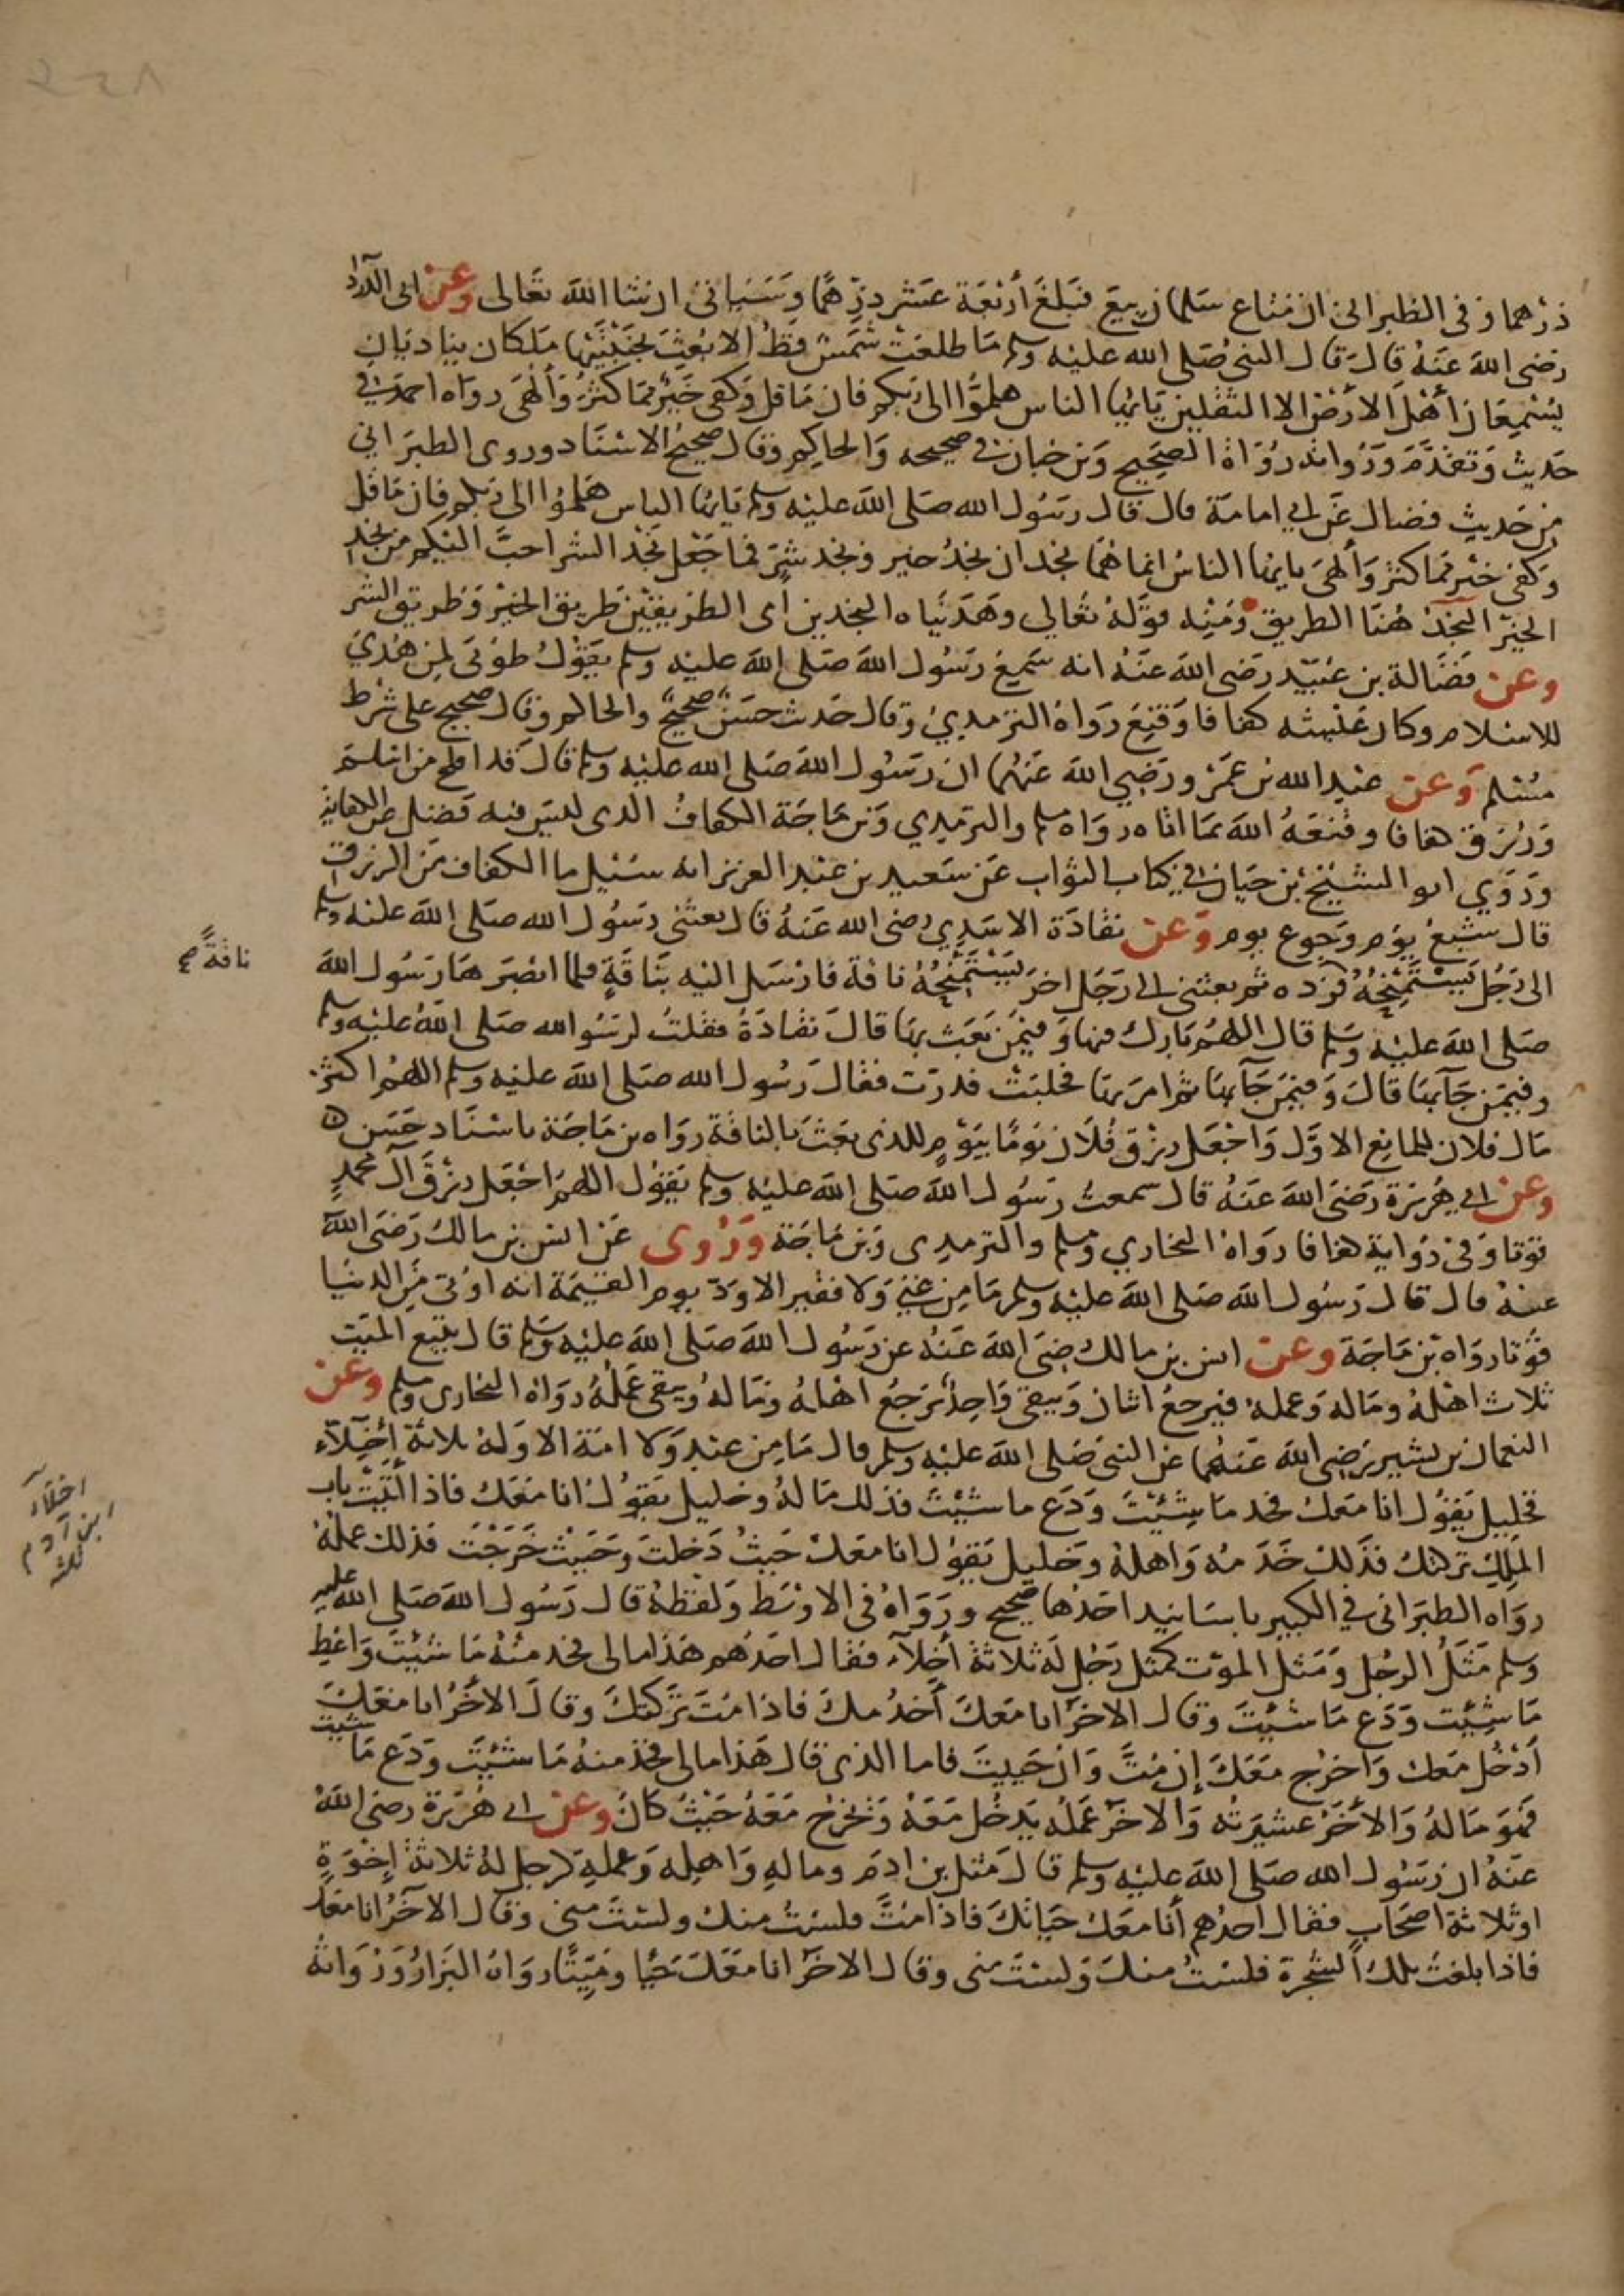 ٢٤٨
درهما وفى الطبرانى ان متاع سلمان بيع فبلغ أربعة عشر درهمًا وسياتى ان شا الله تعالى وعن ابى الدردا
رضى الله عنهُ قال قال النبىُ صلى الله عليه وسلم ما طلعت شمسٌ قطُ إلا بُعِثَ بجنبتيها ملكان يناديانِ
يُسْمِعَان أهْلَ الأرض الا الثقلين يايها الناس هلمُّوا الى ربكم فان ما قل وكفى خيرٌ مما كثرَ وألهى رواه احمد فى
حديث وتقدَّمَ ورُواتُه رُوَاةُ الصحيح وبن حبان فى صحيحه والحاكِم وقال صحيحُ الاسناد وروى الطبرانى
من حَديثِ فضال عَن ابى امامة قال قال رسُول الله صلى الله عليه وسلم يايها الناس هلموُا الى ربكم فان ما قل
وكفى خيْر مما كثر وألهىَ يايها الناسُ انما هُمَا نجدان نجدُ خير ونجد شرٍ فما جَعل نجْد الشر احبَّ اليكم من نجد
الخيرْ النجدُ هُنا الطريق ومنِه قولهُ تعالى وهدَيناه النجدين أى الطريقين طريق الخير وطريق الشر
وعن فضَالة بن عُبَيْد رضى الله عنهُ انه سَمِعَ رسُول الله صَلى الله عليه وسلم يقوْلُ طوُبَى لمِن هُدىَ
للاسْلام وكان عَيْشه كفافا وقنِعَ رَواهُ الترمديُ وقال حَدث حسَنٌ صحيحٌ والحاكم وقال صحيح على شرط
مُسْلم وَعن عبْد الله بن عمَرْو رَضِي الله عَنهُما ان رسُول الله صلى الله عليه وسلم قالَ قد افلح من اسلمَ
ورُزق كفافا وقنعَهُ الله بمَا اتاه رواه مسلم والترمدِي وبن ماجَة الكفافُ الدى ليس فيه فضل عن الكفاية
ورَوَي ابو الشيْخ بن حَيان فى كتاب الثواب عَن سَعيد بن عبْد العزيز انه سُئيل ما الكفاف مِن الرزق
قال شِبَعُ يوْم وَجوع يوم وَعن نقادَة الاسَدِي رضى الله عنهُ قال بعثنى رسُول الله صلى الله عليه وسلم
الى رَجُل يَسْتَمْنِحُهُ فرَده ثم بعثنى الى رَجُل اخرَ يَسْتمْنِحُهُ ناقة فارْسَل اليْه بنَاقةٍ فلما ابْصَرَها رسُول الله
ناقةً صح
صَلى الله عليْه وسلم قال اللهُم بَارك فيها وَفيمَن بَعَث بها قالَ نقادَةُ فقلتُ لرسُو الله صلى الله عليْه وسلم
وفيمَن جَآ بها قالَ وَفِيمَن جَآ بها ثم امرَ بها فحلبَتْ فدرَت فقالَ رسُول الله صَلى الله عليْه وسلم اللهُم اكثرْ
مَال فلان للمانِع الاوَّل وَاجْعَل رزْق فلان يَومًا بيَوْمٍ للدى بعَثَ بالناقة رواه بن مَاجَة باسْناد حَسَن ٥
وعن ابى هُرَيْرَة رَضىَ الله عَنهُ قال سمعتُ رسُول الله صلى الله عليْه وسلم يقوْل اللهُم اجْعَل رزْقَ آل محمدٍ
قوتا وَفى رَوايَة كفافا رَواهُ البخاري ومسلم والترمدى وَبن مَاجَة وَرُوى عَن انس بن مالك رَضىَ الله
عَنهُ قال قال رَسُول الله صَلى الله عليْه وسلم مَا مِن غنِي وَلا فقير الا وَدّ يوم القيمَة انه اوُتى مِن الدنيا
قوُتا رواه بن ماجَة وعن انس بن مالك رضىَ الله عَنهُ عن رسُول الله صَلى الله عليْه وسلم قال يتبَع الميت
ثلاث اهْلهُ ومَاله وَعمله فيرجعُ اثنان وَيبقى وَاحِدٌ يَرجَعُ اهْلهُ ومَالهُ وَيبقى عمَلهُ رواهُ البخارى ومسلم وعن
النعمان بن بشير رَضِى الله عَنهُما عَن النبىَ صَلى الله عليْه وسلم قال مَا مِن عبْد وَلا امَة الا وَلهُ ثلاثة أخِلآءَ
فخليل يقوُل انا مَعك فخد مَا شِئْتَ وَدَع ما شئْتَ فذلك مَالهُ وخليل يقوُل انا معَك فاذا اتيْتَ باب
اخلآء ابن آدم ثلثه
الملِك ترَكتك فذَلك خَدَمُه وَاهلهُ وخليل يقوُل انا معَك حَيثُ دَخلتَ وحَيث خَرَجْتَ فذلك عملهُ
رواه الطبَرانى فى الكبير باسَانيد احَدُها صحيح ورَوَاهُ فى الاوْسَط وَلفظهُ قال رسُول الله صلى الله عليه
وسلم مَثلُ الرجُل وَمَثل الموْت كمثل رَجُل لهُ ثلاثة أخِلآءَ فقال احَدُهم هَذا مالى فخد مِنهُ مَا شئتَ وَاعْطِ
مَا شِئْت وَدَع مَا شئْتَ وقال الاخرُ انا مَعكَ أخدُمكَ فاذا مُتَ تركتكَ وقالَ الأخَرُ انا معَكَ
أدْخُل مَعك وَاخرُج معَكَ إن مُتَّ وَان حَييتَ فاما الذى قال هَذا مالى فخذ منهُ مَا شئْتَ وَدَع مَا شيت
فهُوَ مَالهُ وَالأخَرُ عشيرَتُه وَالاخَرُ عَمَلُه يَدخل مَعَهُ وَيَخرُج مَعَهُ حَيْثُ كان وعن ابى هُرَيْرَة رضى الله
عَنهُ ان رَسُول الله صَلى الله عليْه وسلم قالَ مَثل بن ادَمَ ومالهِ وَاهلِه وَعملِهِ كرجل لهُ ثلاثةُ إخْوَةٍ
اوثلاثة اصْحَابٍ فقال احَدُهم أنا معَك حَياتكَ فاذا مُتَّ فلسْتُ منك ولسْتَ منى وقال الآخَرُ انا معَك
فاذا بلغتَ تلك الشجرة فلسْتُ منكَ وَلسْتَ منى وقال الاخَرُ انا معَكَ حَيًا ومَيِّتًا رواهُ البَزارُ وَرُواتهُ